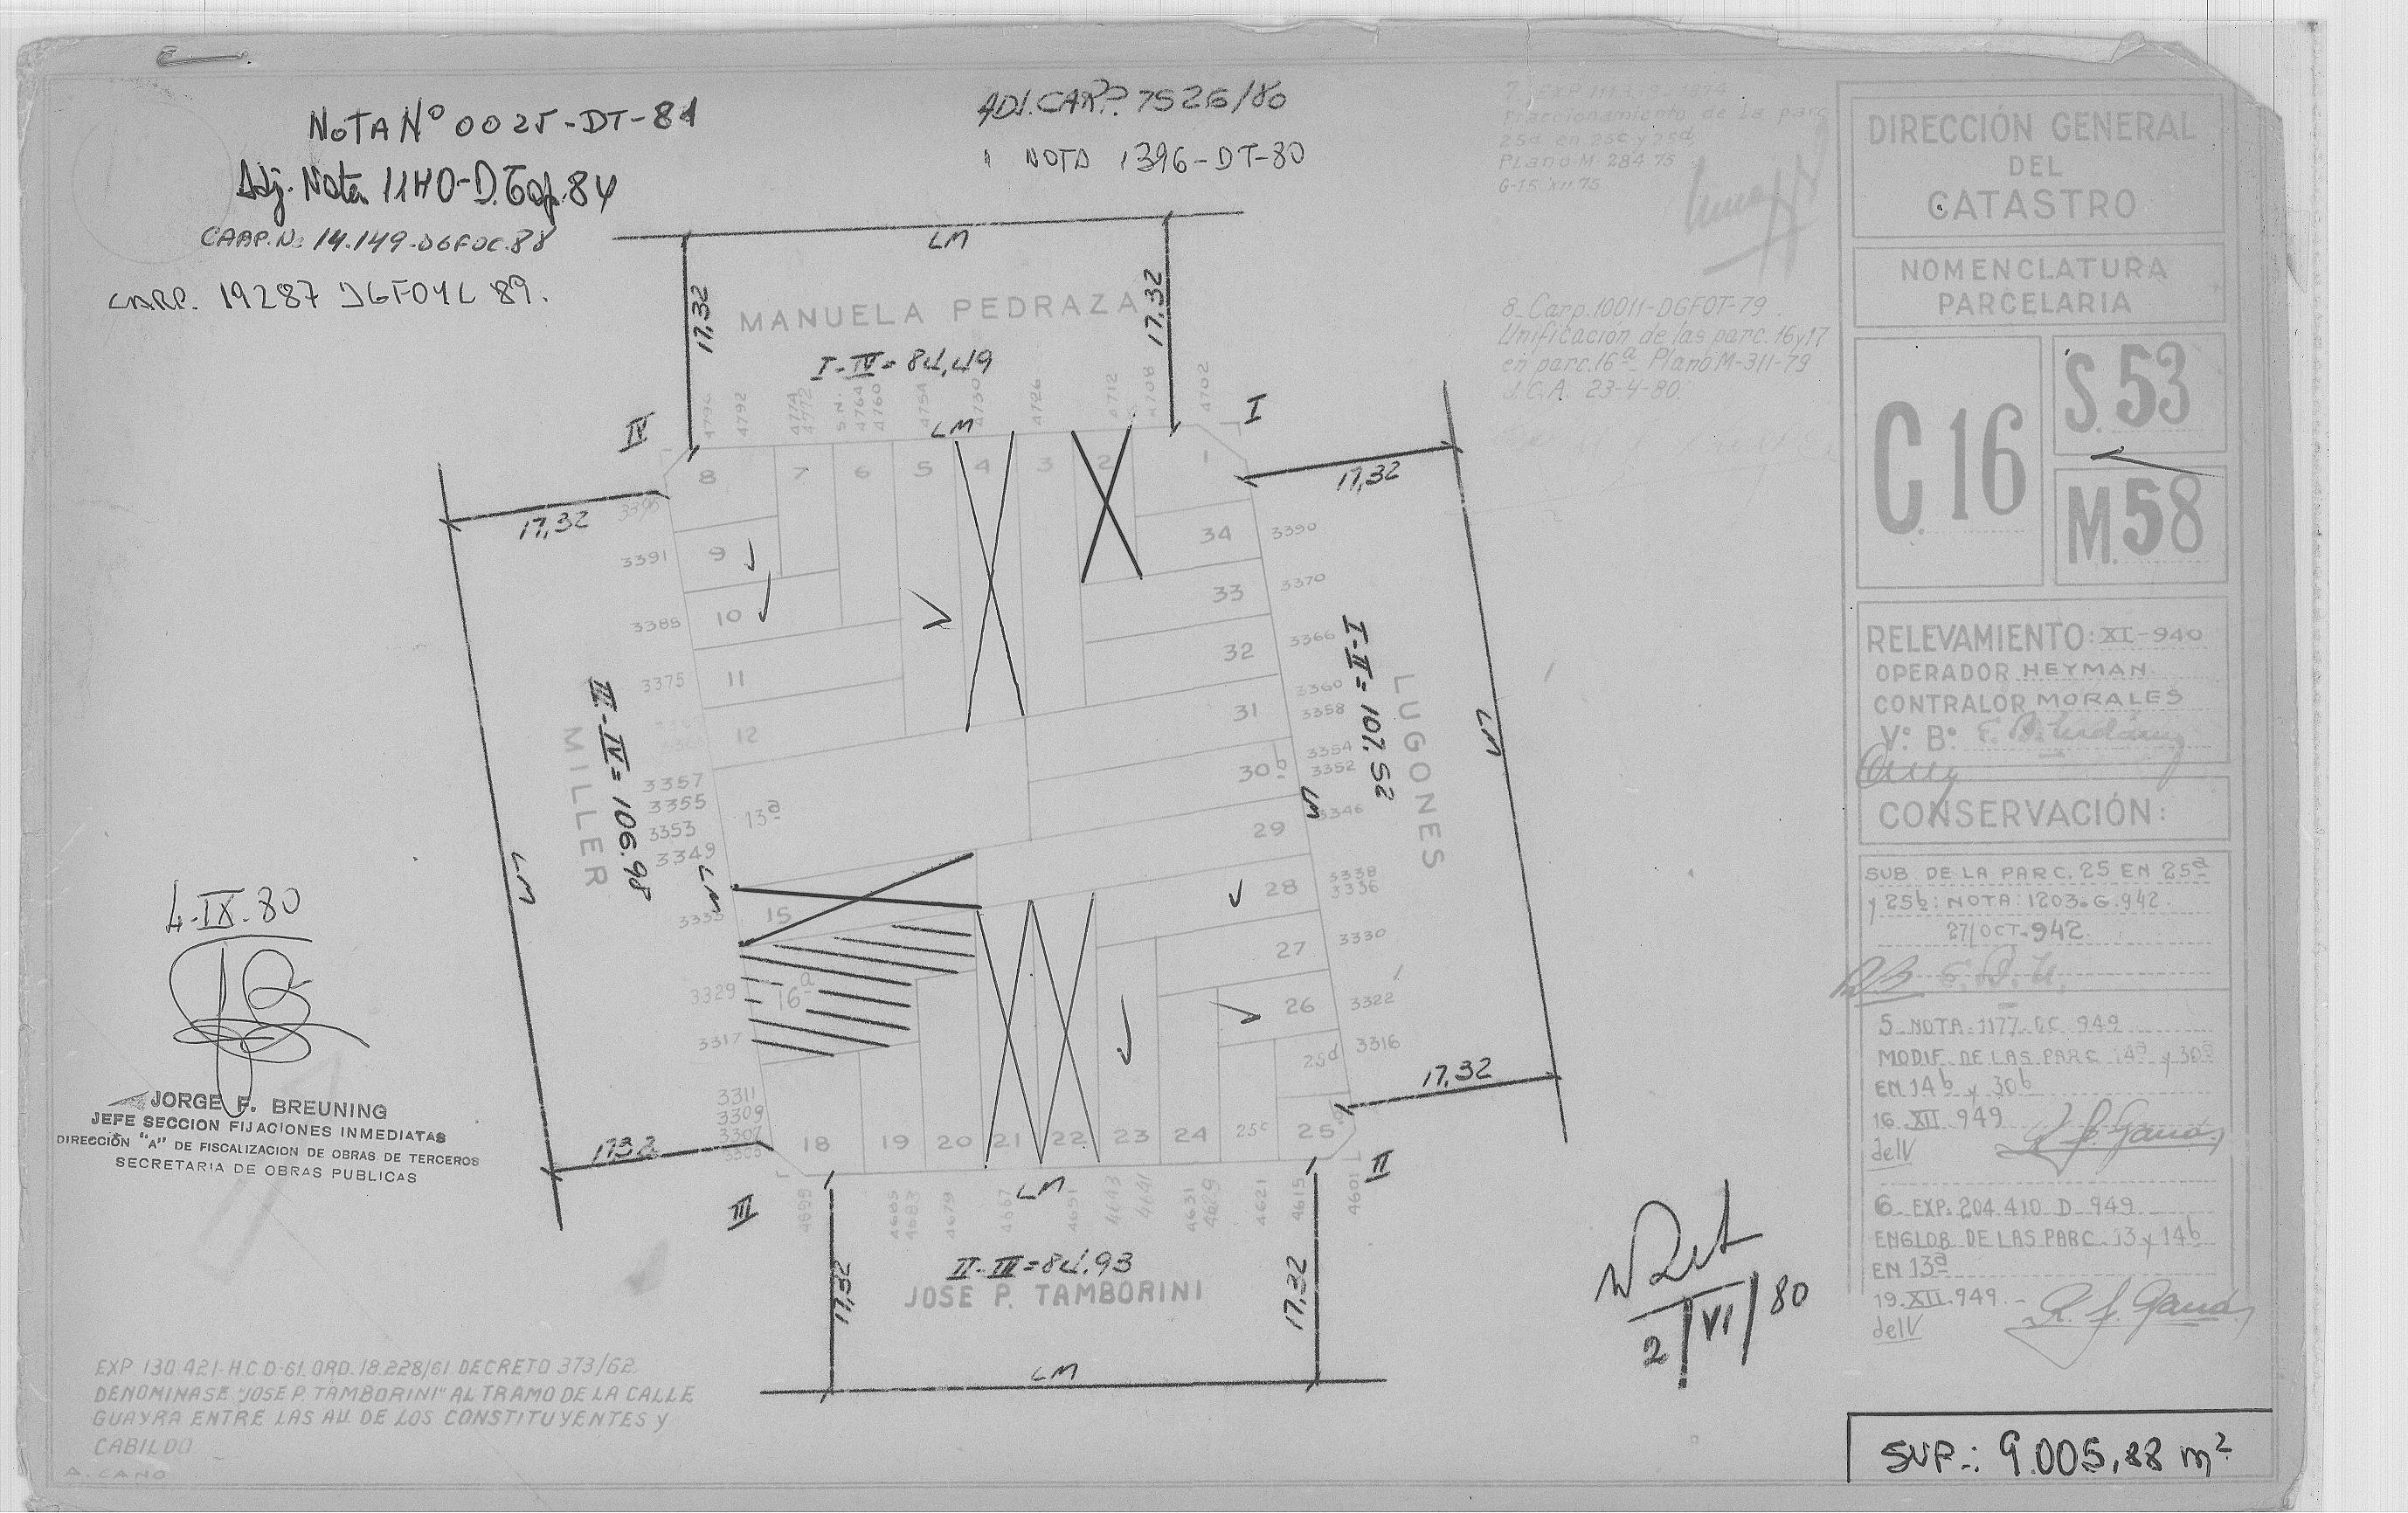 NOTA Nº 0025-DT-81
Adj. Nota 1140-D.Top.84
CARP. Nº 14.149-DGFOC.88
CARP. 19287 DGFOYC 89.
ADJ. CARP. 7526/80
" NOTA 1396-DT-80
Fraccionamiento de la parc
25d en 25c y 25d
Plano M-284-75
G-15 XII 75
8_Carp.10011-DGFOT-79
Unificación de las parc. 16y17
en parc. 16a Plano M-311-79
J.C.A. 23-4-80.
DIRECCIÓN GENERAL
DEL
CATASTRO
NOMENCLATURA
PARCELARIA
C.16
S.53
M.58
RELEVAMIENTO: XI-940
OPERADOR HEYMAN
CONTRALOR MORALES
V: B:
CONSERVACIÓN:
SUB. DE LA PARC. 25 EN 25a
y 25b: NOTA: 1203.G.942.
27/OCT.942.
5_NOTA 1177 DC 949
MODIF. DE LAS PARC 14a y 30a
EN 14b y 30b
16_XII_949
delV
6_EXP. 204.410_D_949
ENGLOB. DE LAS PARC. 13 y 14b
EN 13a
19.XII.949.-
delV
SUP.: 9.005,88 m²
LM
17,32
17,32
MANUELA PEDRAZA
I-IV=84,49
4792
4764
4760
4754
4730
4726
4712
4708
4702
LM
IV
I
17,32
17,32
8
7
6
5
4
3
2
1
9
10
11
12
13a
15
16a
18
19
20
21
22
23
24
25c
25
25d
26
27
28
29
30b
31
32
33
34
3395
3391
3385
3375
3357
3355
3353
3349
3333
3329
3317
3311
3309
3307
3390
3370
3366
3360
3358
3354
3352
3346
3338
3336
3330
3322
3316
III-IV=106.98
MILLER
LM
LM
I-II=107.52
LUGONES
LM
LM
17,32
17,32
III
II
4699
4685
4683
4679
4667
4651
4643
4641
4631
4629
4621
4615
4601
LM
II-III=84.93
JOSE P. TAMBORINI
17,32
17,32
LM
4-IX-80
JORGE F. BREUNING
JEFE SECCION FIJACIONES INMEDIATAS
DIRECCIÓN "A" DE FISCALIZACION DE OBRAS DE TERCEROS
SECRETARIA DE OBRAS PUBLICAS
2/VI/80
EXP. 130.421-H.C.D-61.ORD.18.228/61 DECRETO 373/62.
DENOMINASE "JOSE P. TAMBORINI" AL TRAMO DE LA CALLE
GUAYRA ENTRE LAS AV. DE LOS CONSTITUYENTES y
CABILDO.
A. CANO